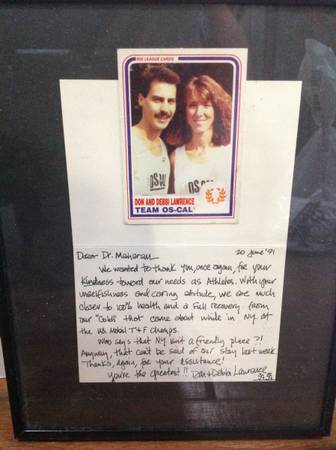 BIG LEAGUE CARDS
DON AND DEBBI LAWRENCE
TEAM OS-CAL
20 June '91
Dear Dr. Maharam,
We wanted to thank you, once again, for your
kindness toward our needs as Athletes. With your
unselfishness and caring attitude, we are much
closer to 100% health and a full recovery from
our "colds" that came about while in NY at
the US Mobil T+F Champs.
Who says that NY isn't a friendly place?!
Anyway, that can't be said of our stay last week.
Thanks, again, for your assistance!
You're the greatest!! Don & Debbi Lawrence